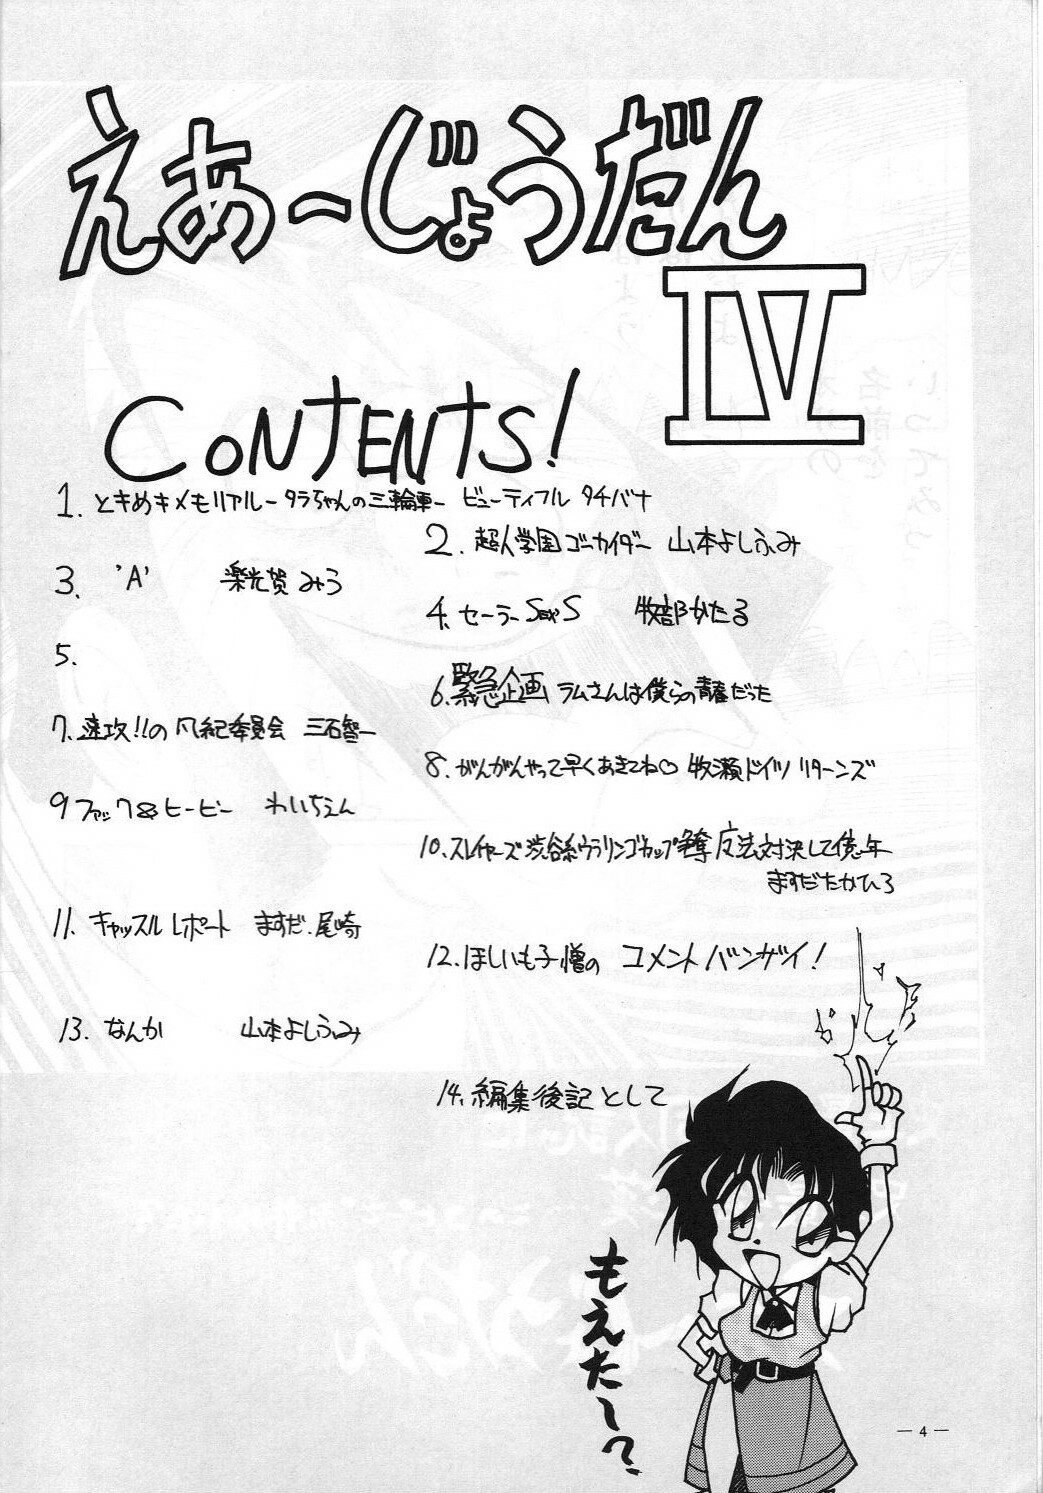 えあーじょうだん
IV
CONTENTS!
1. ときめきメモリアルータラちゃんの三輪車ー ビューティフル タチバナ
2. 超人学園ゴーカイダー 山本よしふみ
3. 'A' 楽光賀みう
4. セーラーSexS 牧部かたる
5.
6. 緊急企画 ラムさんは僕らの青春だった
7. 速攻!!の風紀委員会 三石智一
8. がんがんやって早くあきてね♡ 牧瀬ドイツ リターンズ
9 ファック&ヒービー わいちえん
10. スレイヤーズ渋谷系ウラリンゴカップ争奪 魔法対決して億年
ますだたかひろ
11. キャッスルレポート ますだ.尾崎
12. ほしいも子憎の コメントバンザイ!
13. なんか 山本よしふみ
14. 編集後記として
もえたー?
— 4 —